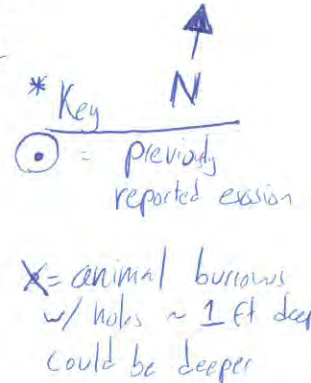 N
* Key
⊙ = previously
reported erosion
X = animal burrows
w/ holes ~ 1 ft deep
could be deeper